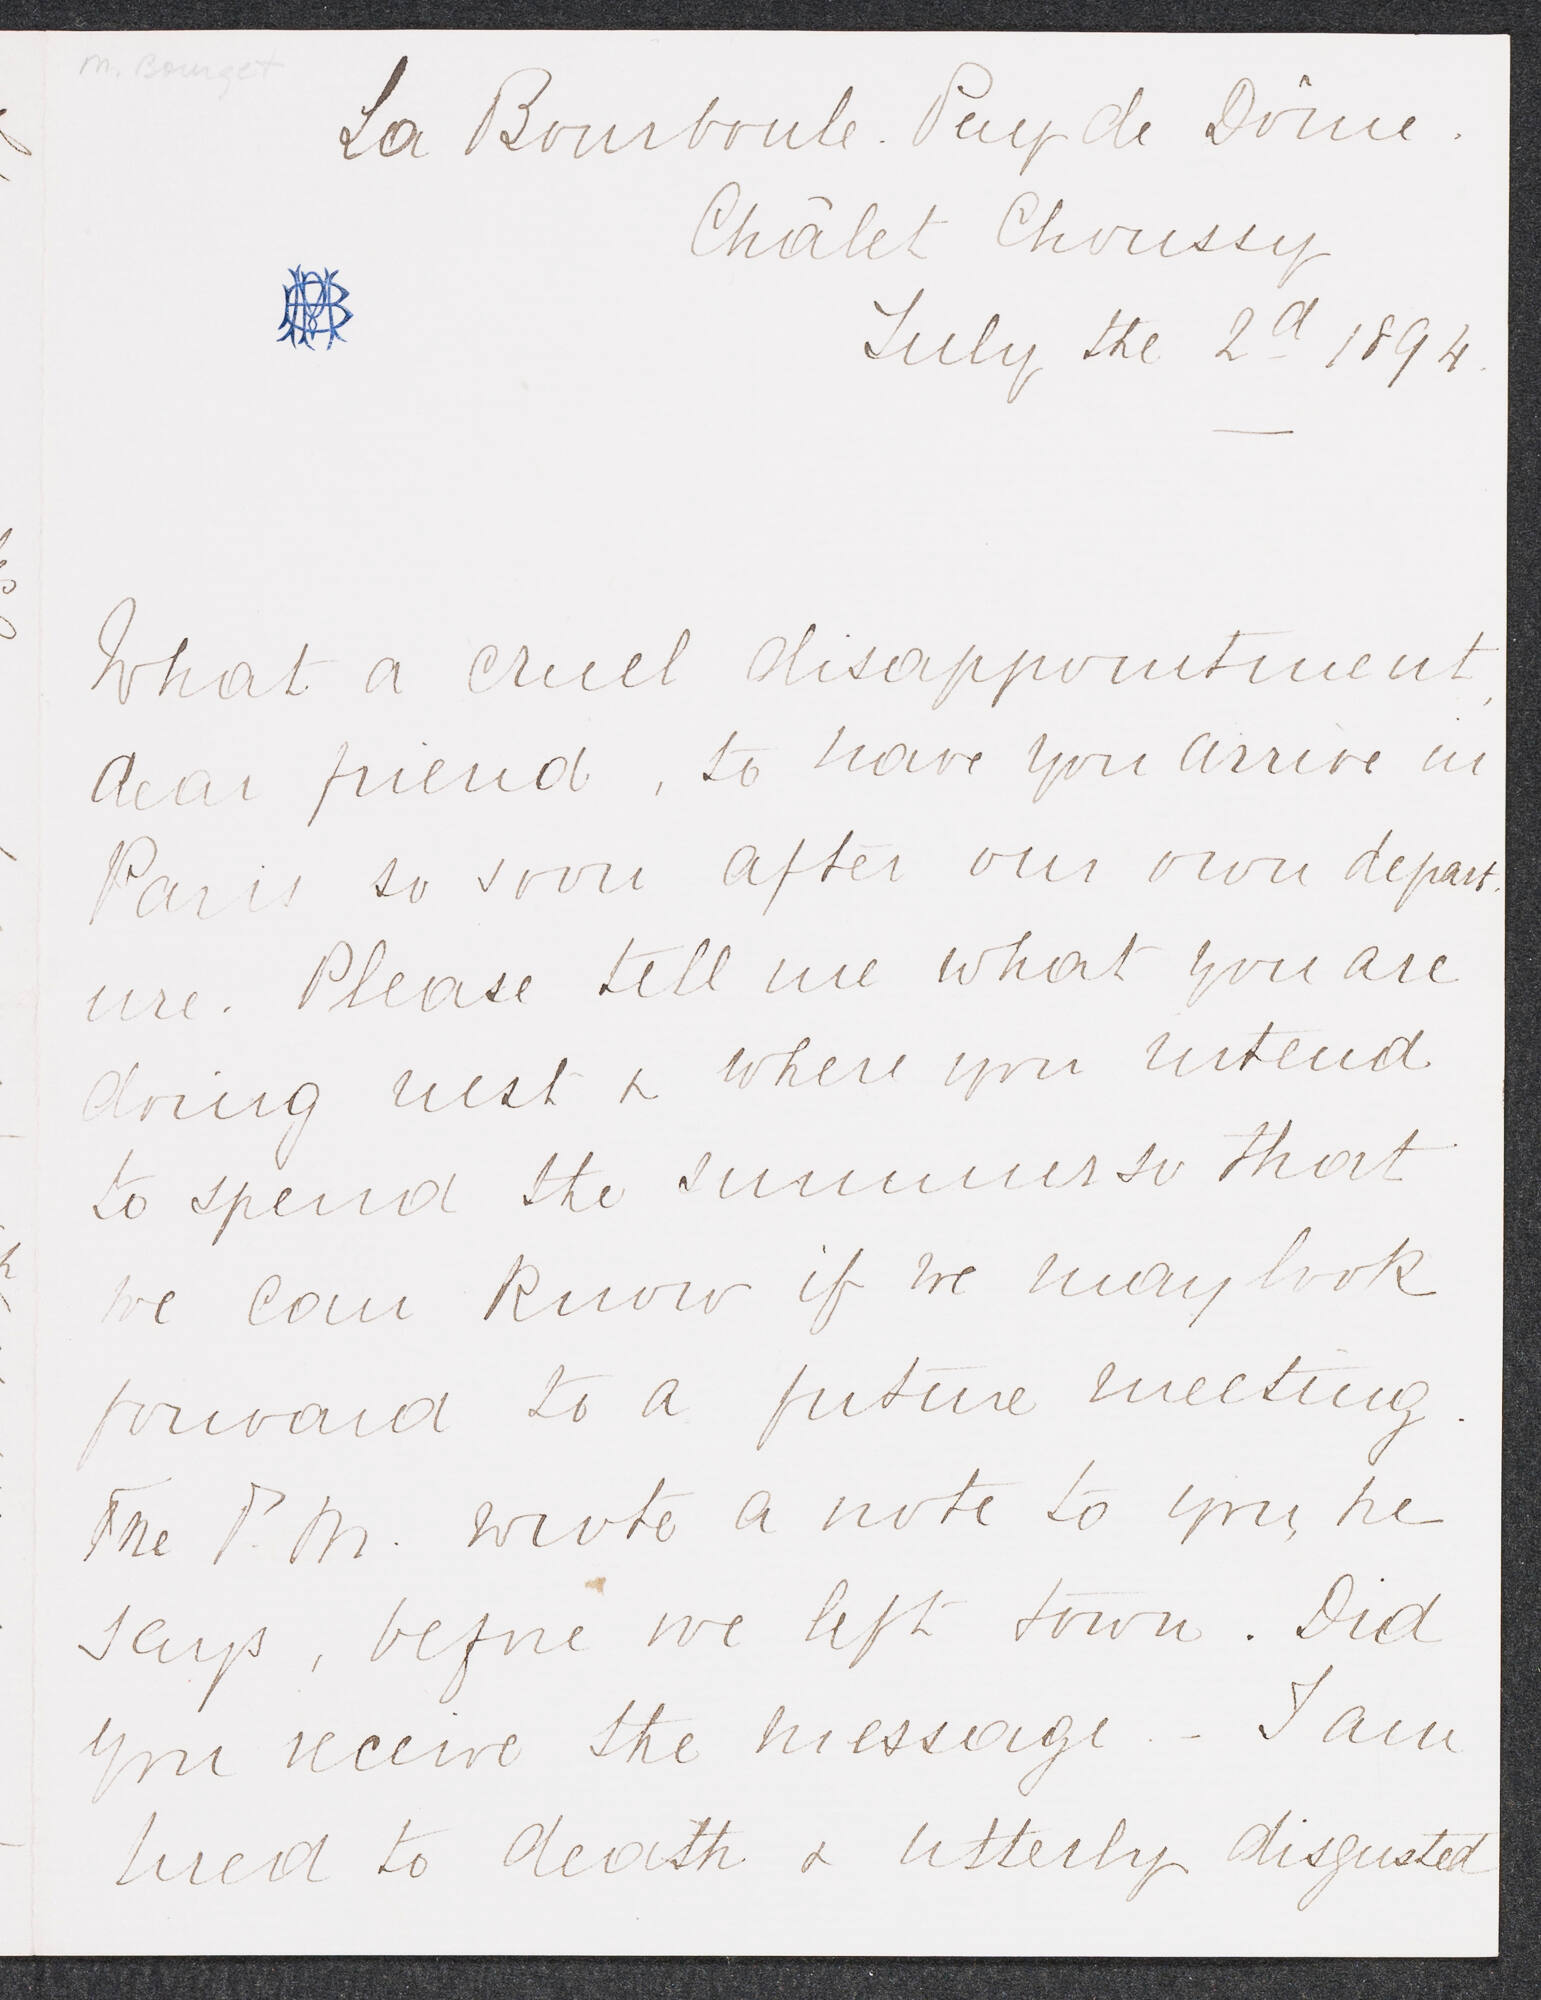 M. Bourget
La Bourboule. Puy de Dôme.
Châlet Choussy
July the 2d 1894.
What a cruel disappointment,
dear friend, to have you arrive in
Paris so soon after our own depart-
ure. Please tell me what you are
doing next & where you intend
to spend the summer so that
we can know if we may look
forward to a future meeting.
The P. M. wrote a note to you, he
says, before we left town. Did
you receive the message. - I am
bored to death & utterly disgusted